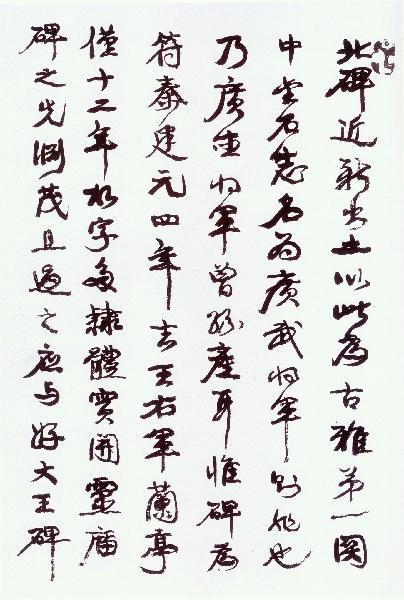 北碑近新出土以此為古雅第一関
中金石志名為廣武将軍則非也
乃廣武将軍曾孫產耳惟碑為
符秦建元四年去王右軍蘭亭
僅十二年字多隸體實開靈廟
碑之先渊茂且過之應与好大王碑